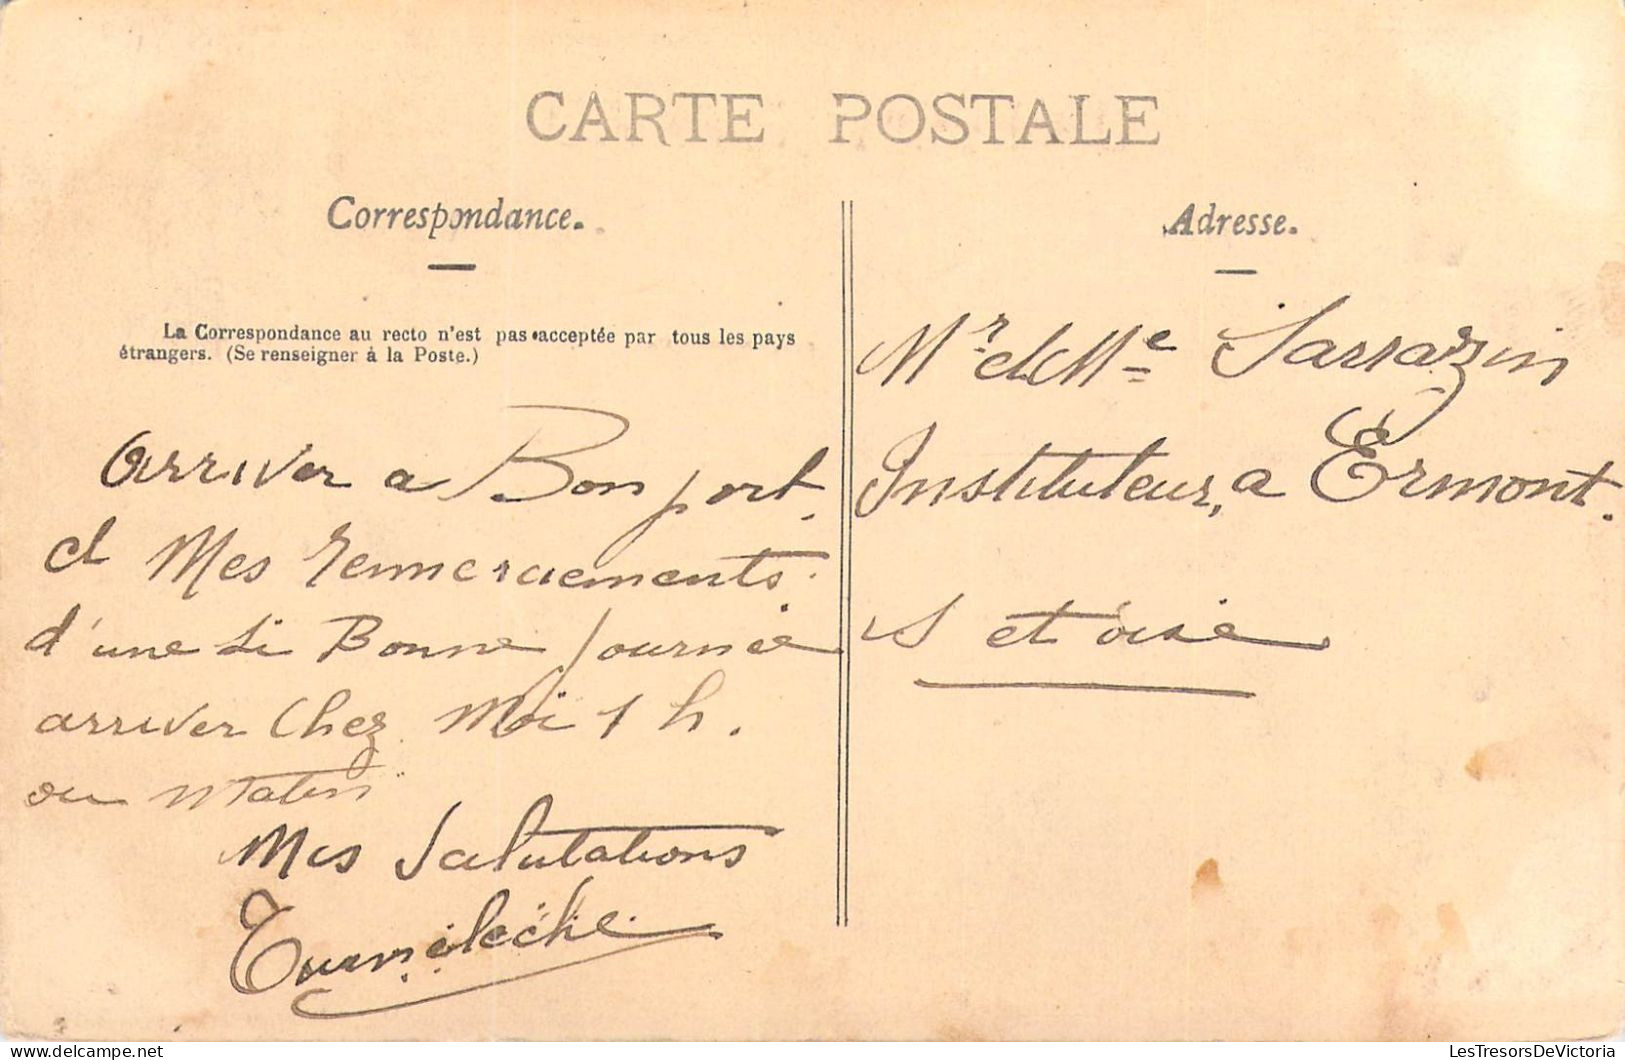 CARTE POSTALE
Correspondance.
La Correspondance au recto n'est pas acceptée par tous les pays
étrangers. (Se renseigner à la Poste.)
arriver a Bon port.
et Mes remerciements
d'une si Bonne journée
arriver Chez Moi 1 h.
du Matin
Mes Salutations
Adresse.
Mr et Me Sarrazin
Instituteur, a Ermont.
S et oise
LesTresorsDeVictoria